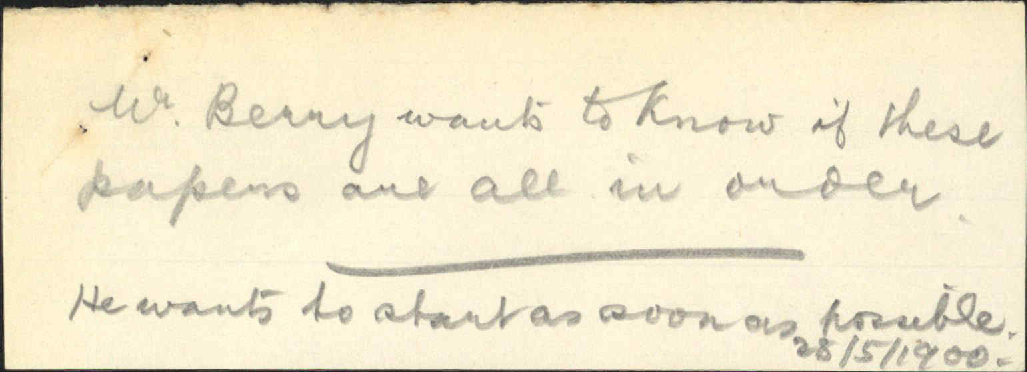 Mr. Berry wants to know if these
papers are all in order.
He wants to start as soon as possible.
28/5/1900.